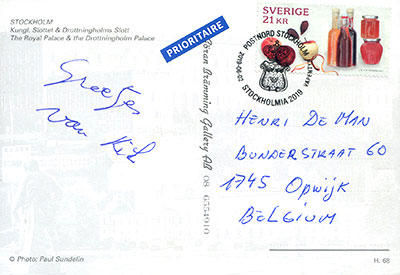 STOCKHOLM
Kungl. Slottet & Drottningholms Slott
The Royal Palace & the Drottningholm Palace
PRIORITAIRE
SVERIGE
21 KR
POSTNORD STOCKHOLM
2019-06-02
STOCKHOLMIA 2019
Groetjes
van Rik
Göran Brämming Gallery AB 08 6554910
HENRI DE MAN
BUNDERSTRAAT 60
1745 OPWIJK
BELGIUM
© Photo: Paul Sundelin
H. 68